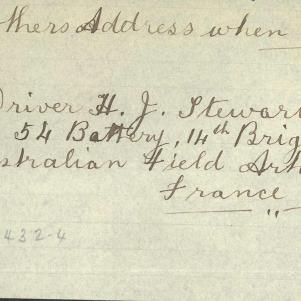 thers Address when
Driver H. J. Stewar
54 Battery, 14th Brig
stralian Field Art
France
432-4